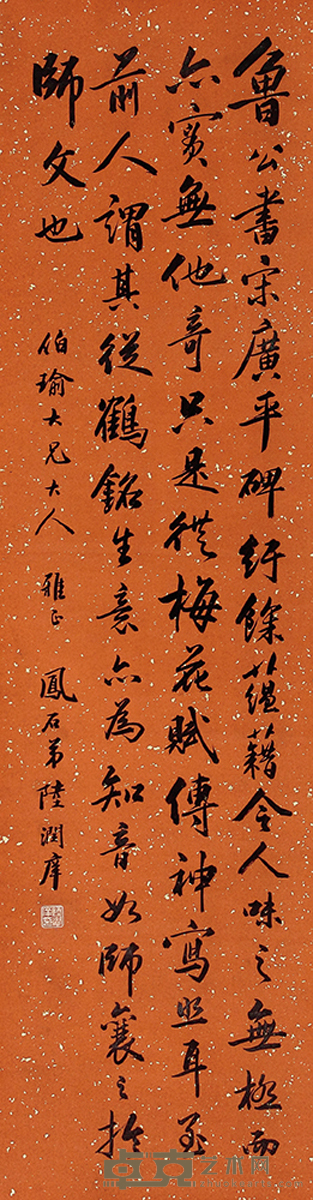 魯公書宋廣平碑紆餘蘊藉令人味之無極而
亦實無他奇只是從梅花賦傳神寫照耳至
前人謂其從鶴銘生意亦為知音如師襄之於
師文也
伯瑜大兄大人 雅正 鳳石弟陸潤庠
卓克艺术网